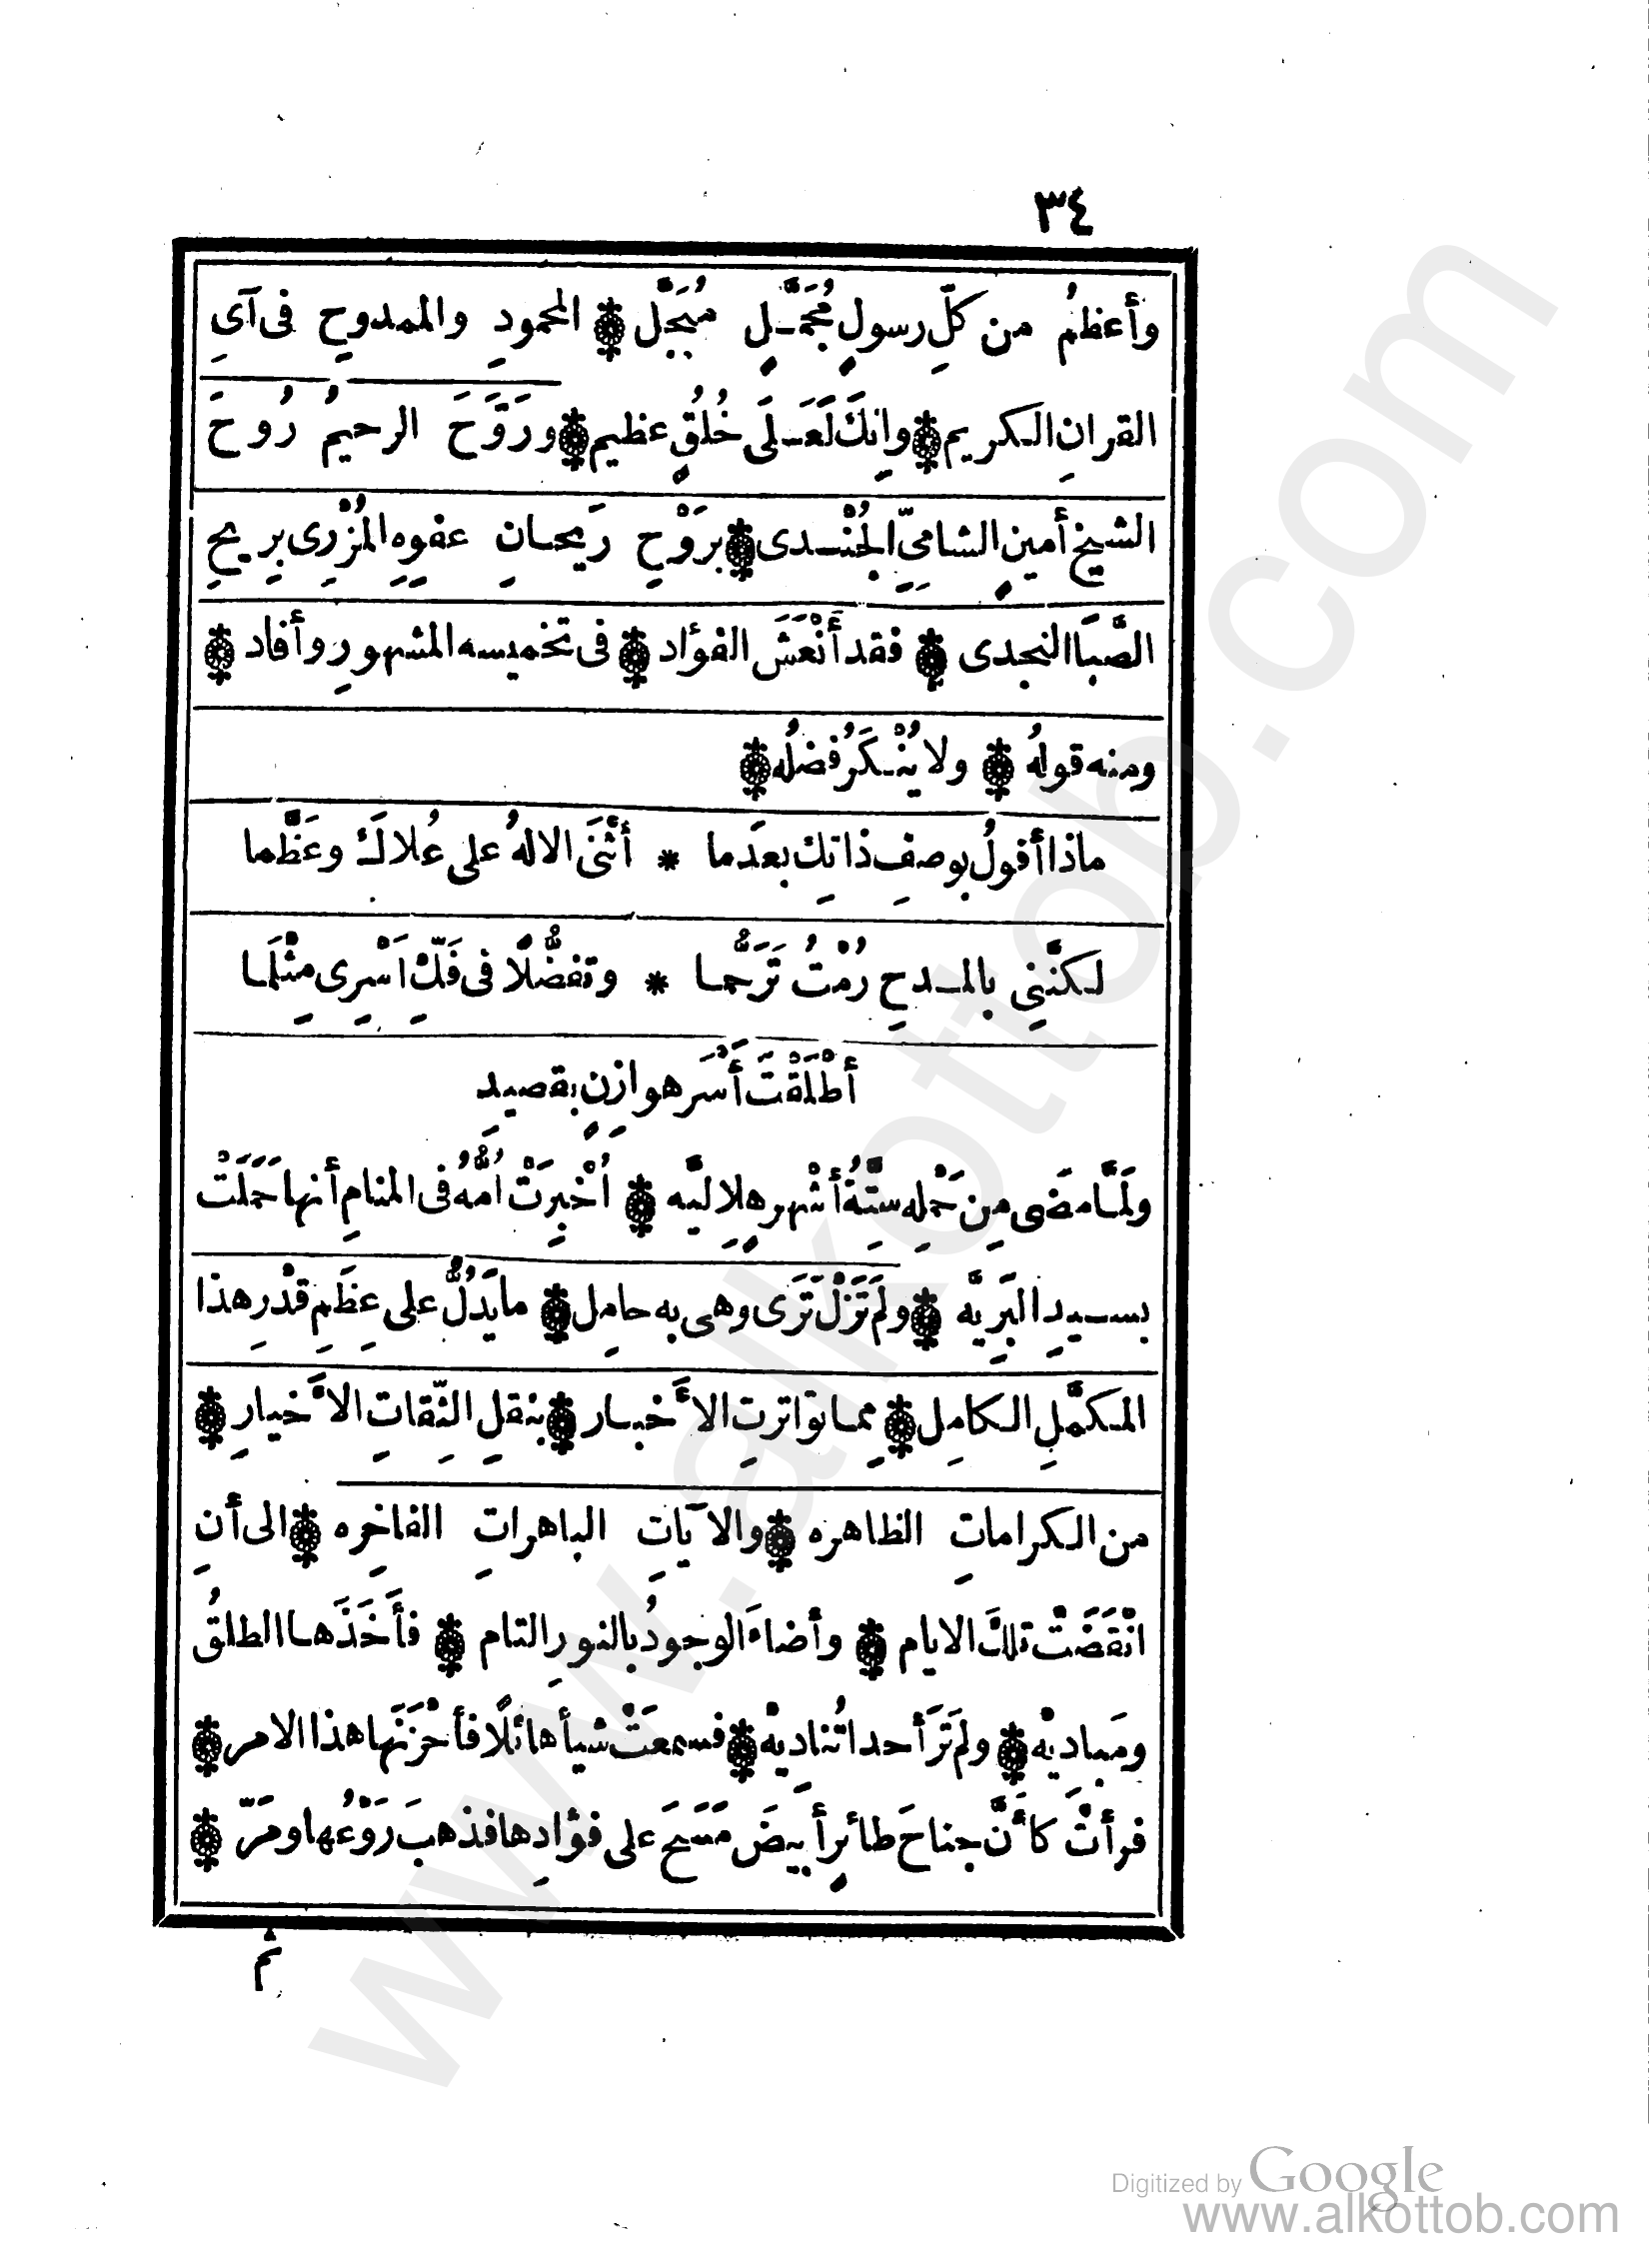 ٣٤
وأعظمُ من كلِّ رسولٍ مُجَمَّلٍ مُبَجَّل ۞ المحمودِ والممدوحِ فى آىِ
القرانِ الكريم ۞ وانِكَ لَعَلَى خُلُقٍ عظيم ۞ ورَوَّحَ الرحيمُ رُوحَ
الشيخ أمينٍ الشامىِّ الجُنْدى ۞ بِرَوْحِ رَيحانِ عفوِهِ المُزْرِى بِرِيحِ
الصَّبَا النجدى ۞ فقد أَنْعَشَ الفؤاد ۞ فى تخميسه المشهورِ وأفاد ۞
ومنه قولهُ ۞ ولا يُنْكَرُ فضلُه ۞
ماذا أقولُ بوصفِ ذاتِك بعدَما * أَثْنَى الالهُ على عُلاكَ وعَظَّما
لكنَّنِى بالمدحِ رُمْتُ تَرَحُّما * وتفضُّلًا فى فَكِّ اَسْرِى مِثْلَما
أَطْلَقْتَ أَسْرَ هوازِنٍ بقصيدِ
ولَمَّا مضَى مِن حَمْلِه ستَّةُ أشْهرٍ هِلاليَّه ۞ اُخْبِرَتْ اُمُّهُ فى المنامِ أنها حَمَلَتْ
بسيدِ البَرِيَّه ۞ ولَم تَزَلْ تَرَى وهى به حامِل ۞ ما يَدُلُّ على عِظَمِ قدْرِ هذا
المكمَّلِ الكامِل ۞ مِما تواترتِ الأَخبار ۞ بِنقلِ الثِّقاتِ الأَخيارِ ۞
من الكراماتِ الظاهره ۞ والآياتِ الباهراتِ الفاخِره ۞ الى أنِ
انْقَضَتْ تلكَ الايام ۞ وأضاءَ الوجودُ بالنورِ التام ۞ فأَخَذَها الطلقُ
ومَبادِيْه ۞ ولَم تَرَ أحدا تُنادِيْه ۞ فسمعَتْ شيأ هائلًا فأحْزَنَها هذا الامر ۞
فرأتْ كأَنَّ جناحَ طائرٍ أبيضَ مَسَحَ على فؤادِها فذهبَ رَوْعُها ومَرّ ۞
ثم
Digitized by Google
www.alkottob.com
www.alkottob.com